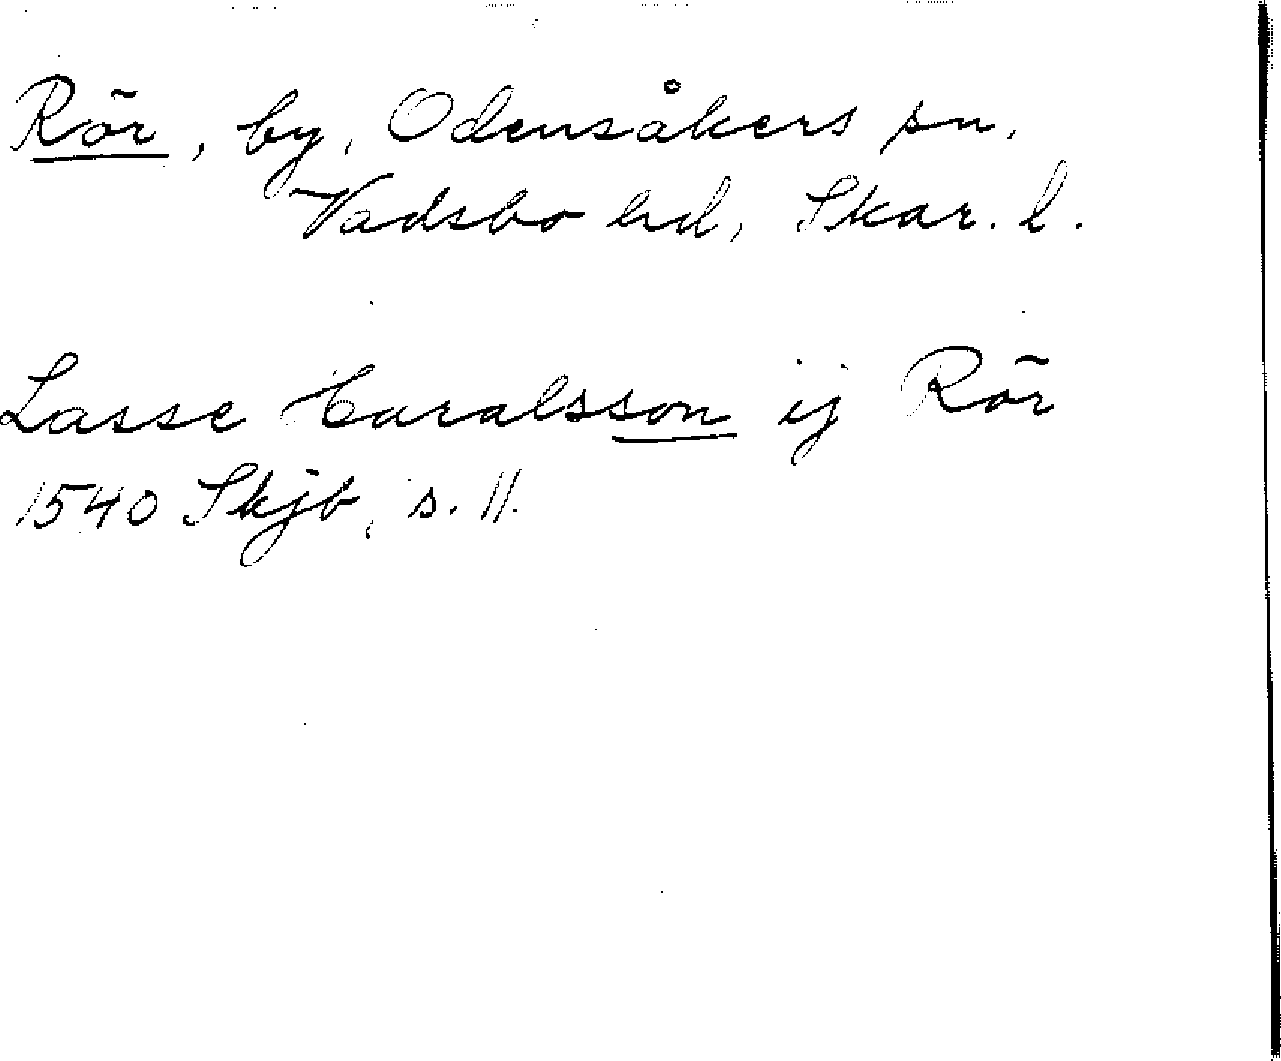 Rör, by, Odensåkers sn,
Vadsbo hd, Skar. l.
Lasse Haralsson ij Rör
1540 Skjb, s. 11.